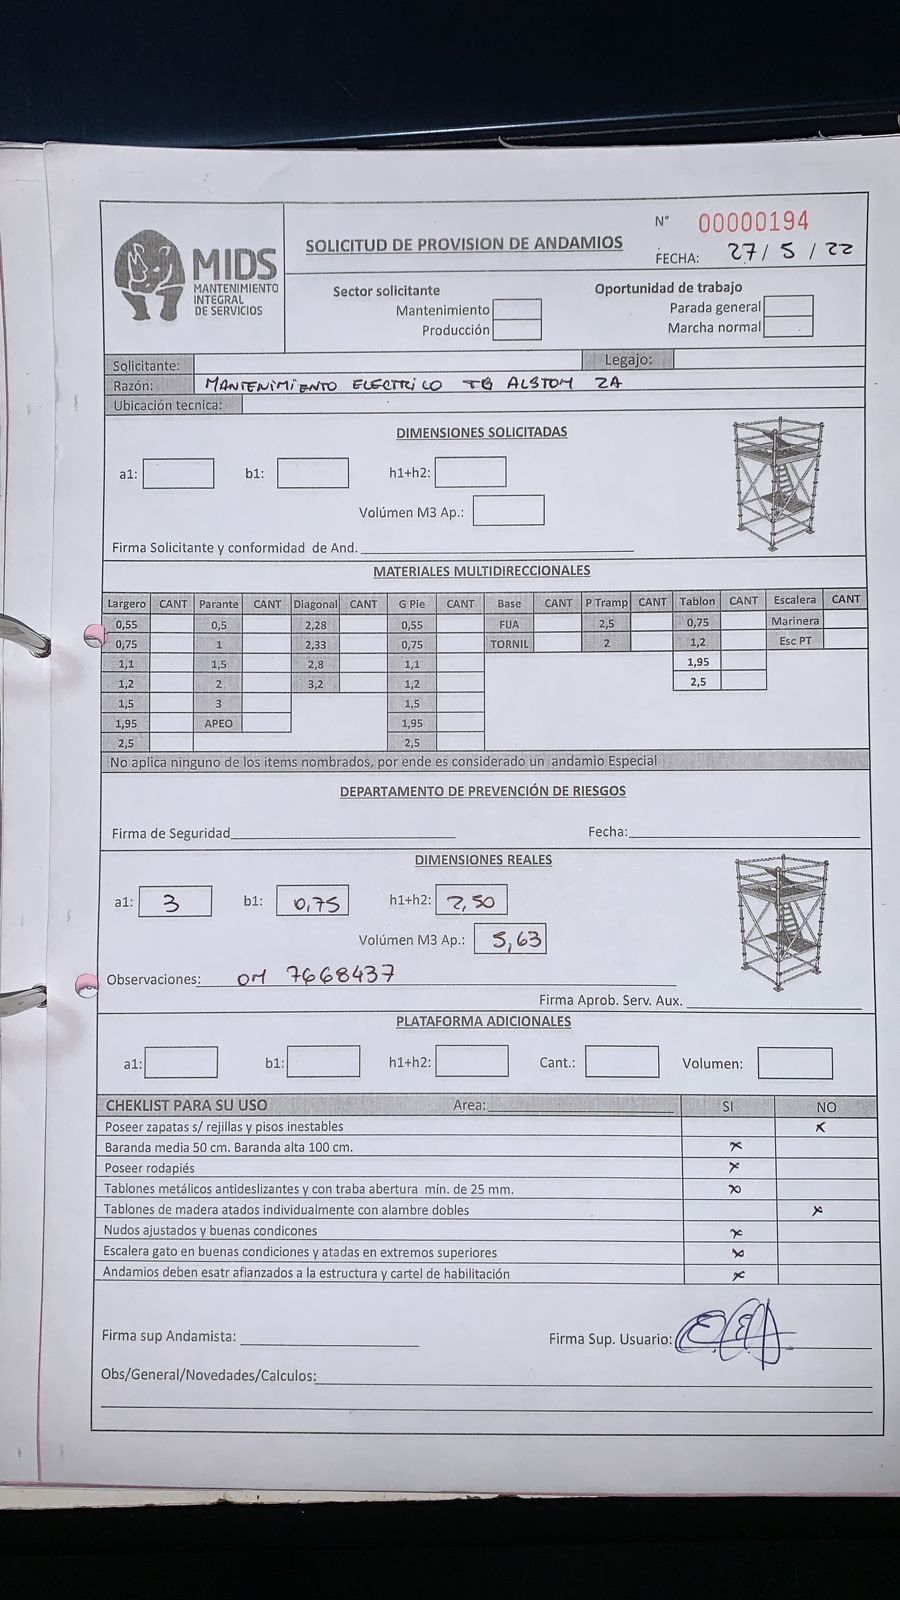 MIDS
MANTENIMIENTO
INTEGRAL
DE SERVICIOS
SOLICITUD DE PROVISION DE ANDAMIOS
N° 00000194
FECHA: 27 / 5 / 22
Sector solicitante
Mantenimiento
Producción
Oportunidad de trabajo
Parada general
Marcha normal
Solicitante: Legajo:
Razón: MANTENIMIENTO ELECTRICO TG ALSTOM 2A
Ubicación tecnica:
DIMENSIONES SOLICITADAS
a1: b1: h1+h2:
Volúmen M3 Ap.:
Firma Solicitante y conformidad de And.
MATERIALES MULTIDIRECCIONALES
Largero CANT Parante CANT Diagonal CANT G Pie CANT Base CANT P Tramp CANT Tablon CANT Escalera CANT
0,55 0,5 2,28 0,55 FIJA 2,5 0,75 Marinera
0,75 1 2,33 0,75 TORNIL 2 1,2 Esc PT
1,1 1,5 2,8 1,1 1,95
1,2 2 3,2 1,2 2,5
1,5 3 1,5
1,95 APEO 1,95
2,5 2,5
No aplica ninguno de los items nombrados, por ende es considerado un andamio Especial
DEPARTAMENTO DE PREVENCIÓN DE RIESGOS
Firma de Seguridad Fecha:
DIMENSIONES REALES
a1: 3 b1: 0,75 h1+h2: 2,50
Volúmen M3 Ap.: 5,63
Observaciones: OM 7668437
Firma Aprob. Serv. Aux.
PLATAFORMA ADICIONALES
a1: b1: h1+h2: Cant.: Volumen:
CHEKLIST PARA SU USO Area: SI NO
Poseer zapatas s/ rejillas y pisos inestables x
Baranda media 50 cm. Baranda alta 100 cm. x
Poseer rodapiés x
Tablones metálicos antideslizantes y con traba abertura mín. de 25 mm. x
Tablones de madera atados individualmente con alambre dobles x
Nudos ajustados y buenas condicones x
Escalera gato en buenas condiciones y atadas en extremos superiores x
Andamios deben esatr afianzados a la estructura y cartel de habilitación x
Firma sup Andamista: Firma Sup. Usuario:
Obs/General/Novedades/Calculos: